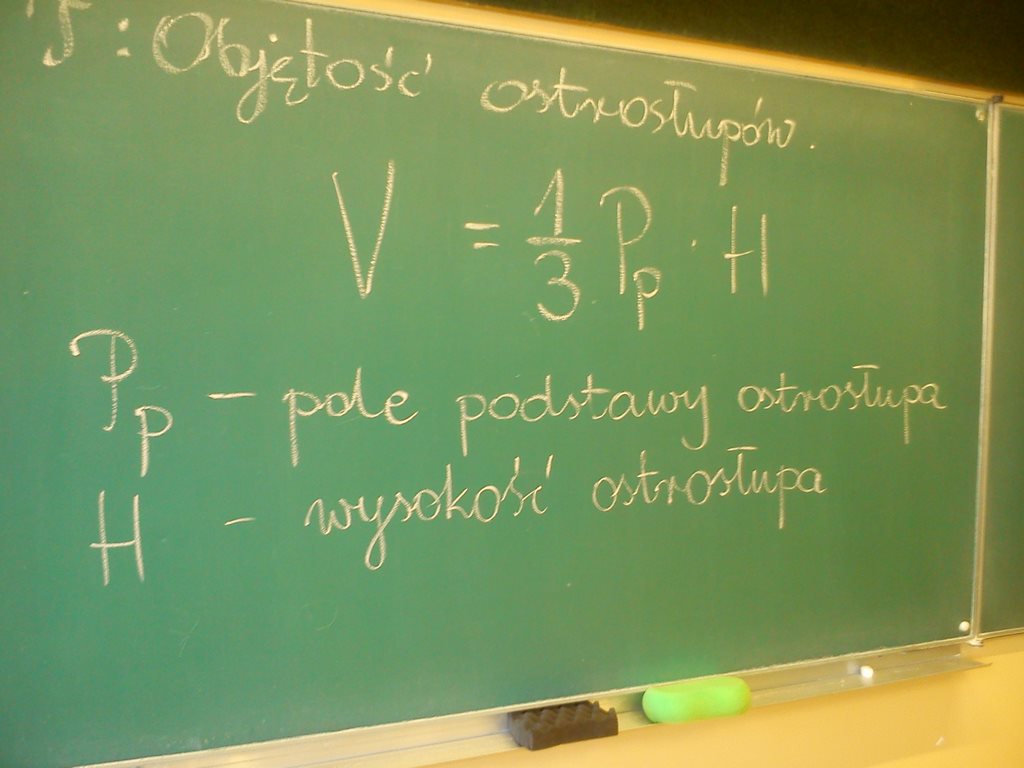 T: Objętość ostrosłupów.
V = 1/3 Pp · H
Pp – pole podstawy ostrosłupa
H – wysokość ostrosłupa